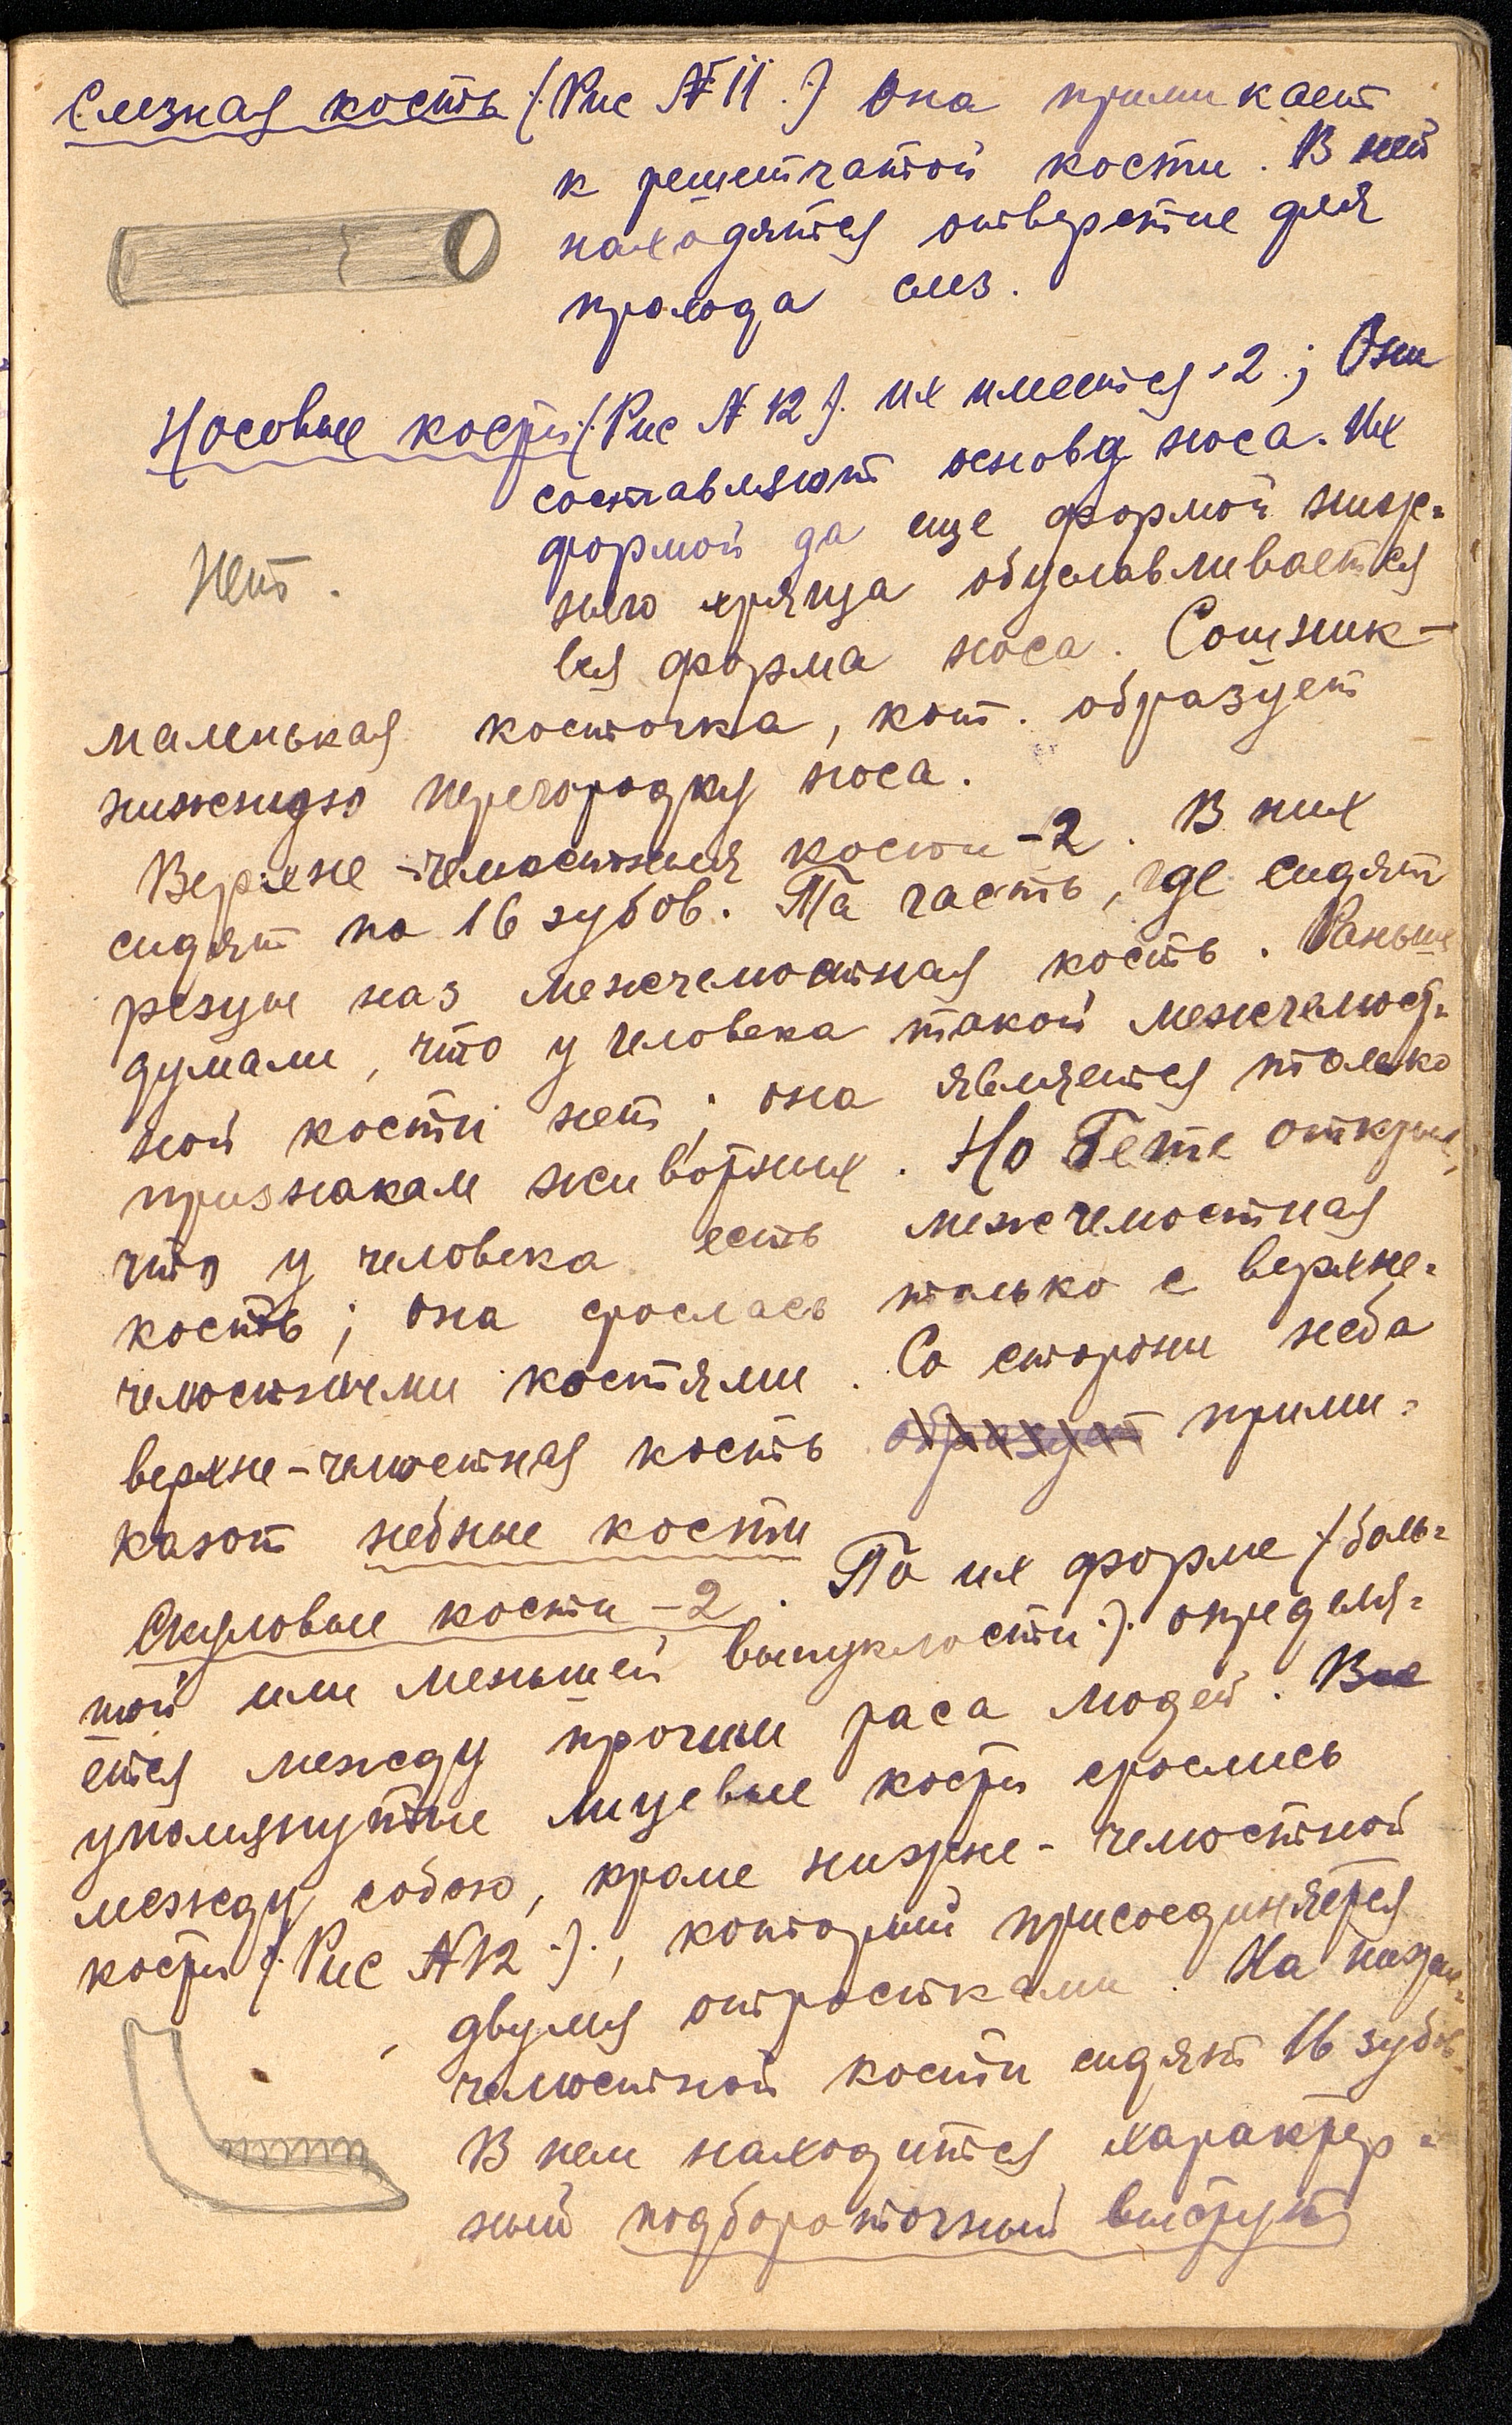 Слезная кость (Рис № 11.) Она примикает
к решетчатой кости. В ней
находятся отверстие для
прохода слез.
Носовые кости (Рис № 12). их имеется -2; Они
составляют основу носа. Их
формой да еще формой ниж-
него хряща обуславливается
вся форма носа. Сошник-
Нет.
маленькая косточка, кот. образует
нижнюю перегородку носа.
Верхне-челюстныя кости -2. В них
сидят по 16 зубов. Та часть, где сидят
резцы наз межчелюстная кость. Раньше
думали, что у человека такой межчелюст-
ной кости нет; она является только
признакам животных. Но Гете открыл,
что у человека есть межчелюстная
кость; она срослась только с верхне-
челюстными костями. Со стороны неба
верхне-челюстная кость образует прими-
кают небные кости
Скуловые кости -2. По их форме (боль-
шой или меньшей выпуклости.) определя-
ется между прочим раса людей. Все
упомянутые лицевые кости срослись
между собою, кроме нижне-челюстной
кости (Рис № 12.), который присоединяется
двумя отростками. На нижне-
челюстной кости сидят 16 зубов.
В нем находится характер-
ный подбороточный выступ